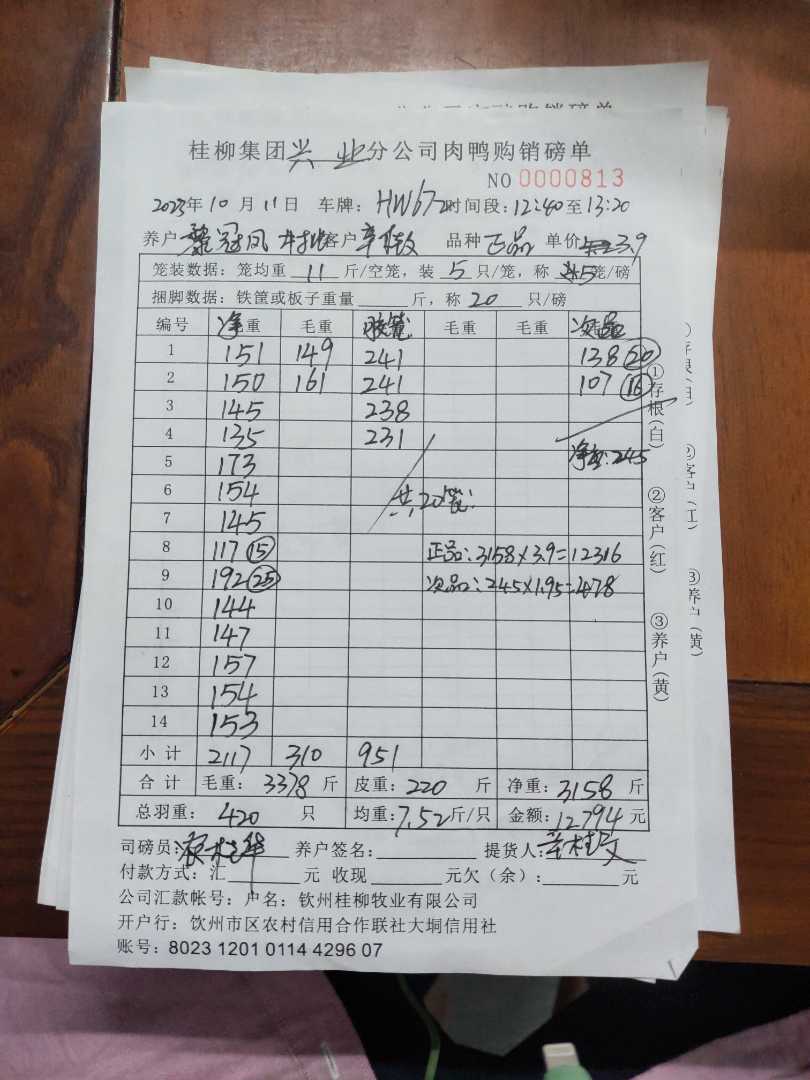 桂柳集团兴业分公司肉鸭购销磅单
NO 0000813
2023年10月11日 车牌：HW672时间段：12:40至13:20
养户黎冠凤 客户 品种正品 单价3.9
笼装数据：笼均重 11 斤/空笼，装 5 只/笼，称 5笼/磅
捆脚数据：铁筐或板子重量 斤，称 20 只/磅
编号 净毛重 毛重 胶笼 毛重 毛重 次品
1 151 149 241 138 20
2 150 161 241 107 16
3 145 238
4 135 231
5 173 净重：245
6 154 共20笼
7 145
8 117 15 正品：3158×3.9=12316
9 192 25 次品：245×1.95=478
10 144
11 147
12 157
13 154
14 153
小计 2117 310 951
合计 毛重：3378斤 皮重：220 斤 净重：3158斤
总羽重：420 只 均重：7.52斤/只 金额：12794元
司磅员： 养户签名： 提货人：
付款方式：汇 元 收现 元欠（余）： 元
公司汇款帐号：户名：钦州桂柳牧业有限公司
开户行：饮州市区农村信用合作联社大垌信用社
账号：8023 1201 0114 4296 07
①存根（白）
②客户（红）
③养户（黄）